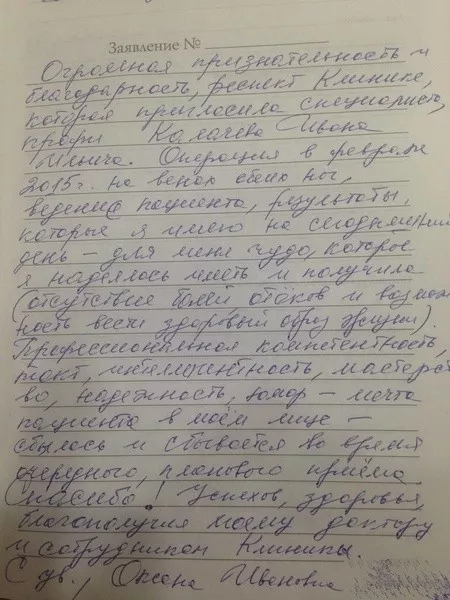 Заявление №
Огромная признательность и
благодарность, респект Клинике,
которая пригласила специалиста,
профи Калачева Ивана
Ильича. Операция в феврале
2015г. на венах обеих ног,
ведение пациента, результаты,
которые я имею на сегодняшний
день – для меня чудо, которое
я надеялась иметь и получила
(отсутствие болей отёков и возмож
ность вести здоровый образ жизни).
Профессиональная компетентность,
такт, интеллигентность, мастерст
во, надежность, юмор – мечта
пациента в моём лице –
сбылось и сбывается во время
очередного, планового приёма.
Спасибо! Успехов, здоровья,
благополучия моему доктору
и сотрудникам Клиники.
С ув., Оксана Ивановна